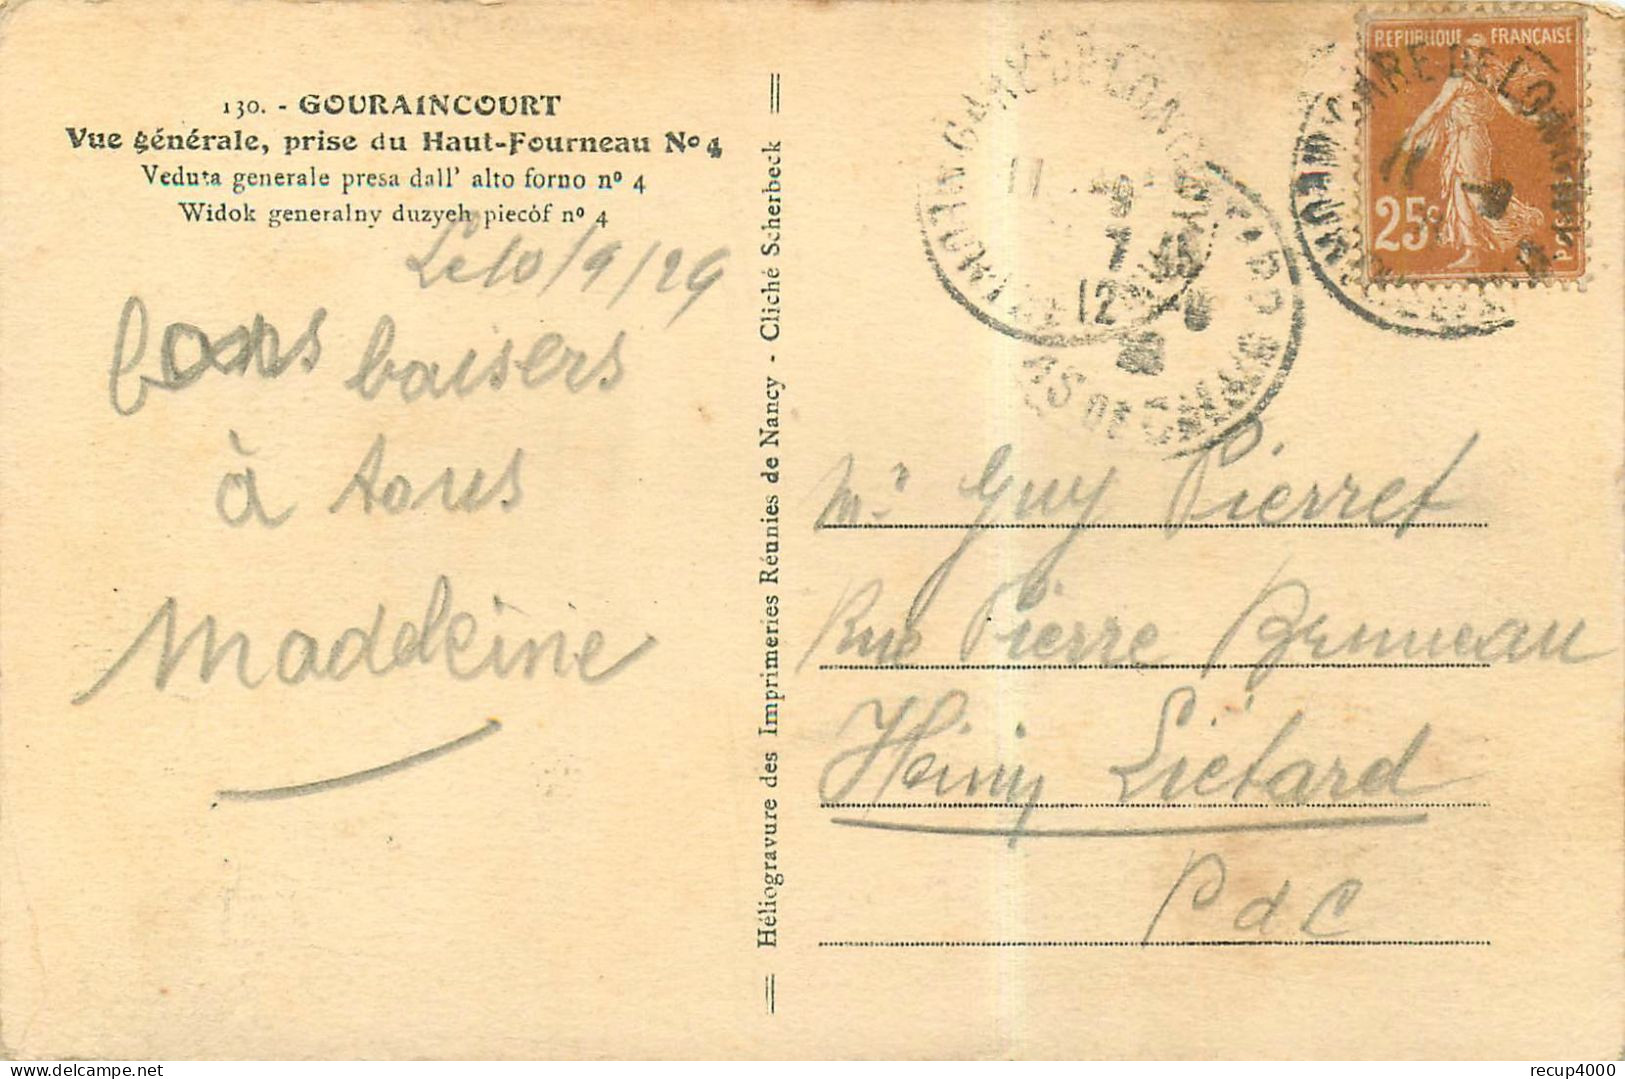 130. - GOURAINCOURT
Vue générale, prise du Haut-Fourneau Nº 4
Veduta generale presa dall' alto forno nº 4
Widok generalny duzyeh piecóf nº 4
Le 10/9/29
bons baisers
à tous
Madeleine
Héliogravure des Imprimeries Réunies de Nancy - Cliché Scherbeck
REPUBLIQUE FRANÇAISE
25c
POSTES
GARE DE LONGWY
11
12
PAS DE CALAIS
Mr Guy Pierret
Rue Pierre
Hénin Liétard
P d C
recup4000